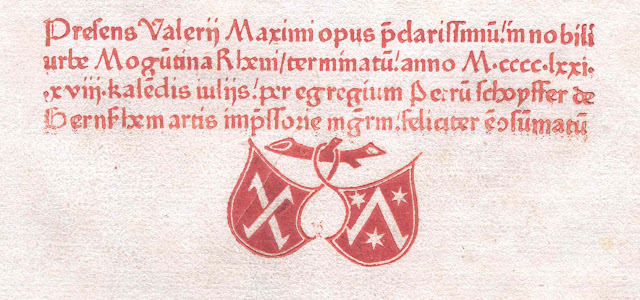 Presens Valerij Maximi opus p̄clarissimū! in nobili
urbe Mogūtina Rheni/terminatū! anno M·cccc·lxxi·
·xviij·kalēdis iulijs! per egregium Petrū schoyffer de
Gernsshem artis imp̄ssorie mḡrm/feliciter ē ↄsūmatū